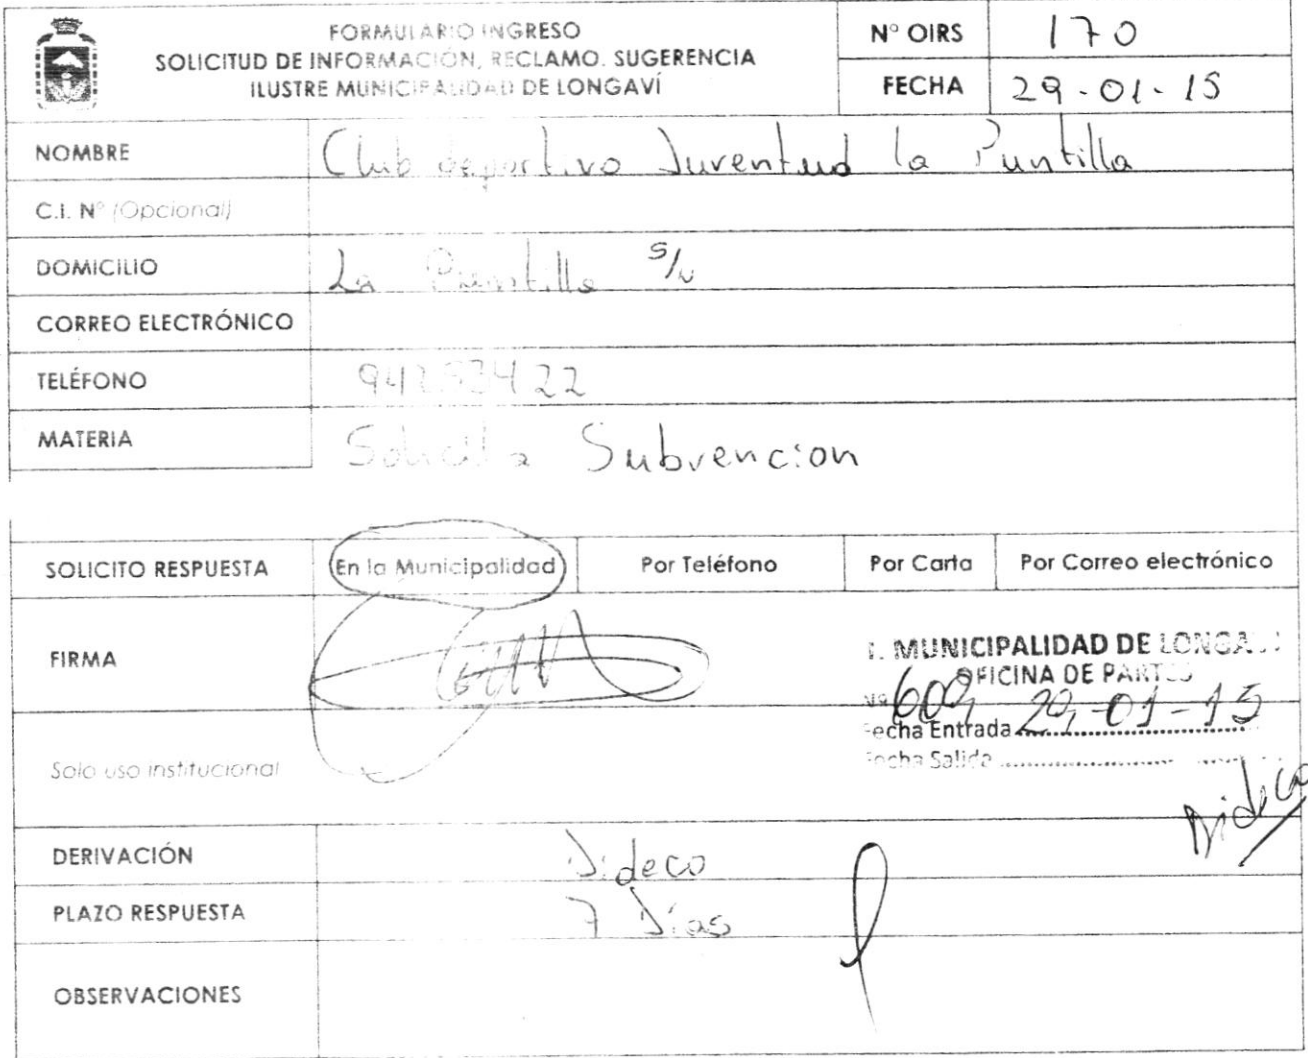 FORMULARIO INGRESO
SOLICITUD DE INFORMACIÓN, RECLAMO. SUGERENCIA
ILUSTRE MUNICIPALIDAD DE LONGAVÍ
N° OIRS 170
FECHA 29-01-15
NOMBRE Club deportivo Juventud la Puntilla
C.I. N° (Opcional)
DOMICILIO La Puntilla s/n
CORREO ELECTRÓNICO
TELÉFONO
MATERIA Solicita Subvencion
SOLICITO RESPUESTA En la Municipalidad Por Teléfono Por Carta Por Correo electrónico
FIRMA
I. MUNICIPALIDAD DE LONGAVI
OFICINA DE PARTES
Nº 609
Fecha Entrada 29-01-15
Fecha Salida
Solo uso institucional
Dideco
DERIVACIÓN Dideco
PLAZO RESPUESTA 7 Días
OBSERVACIONES